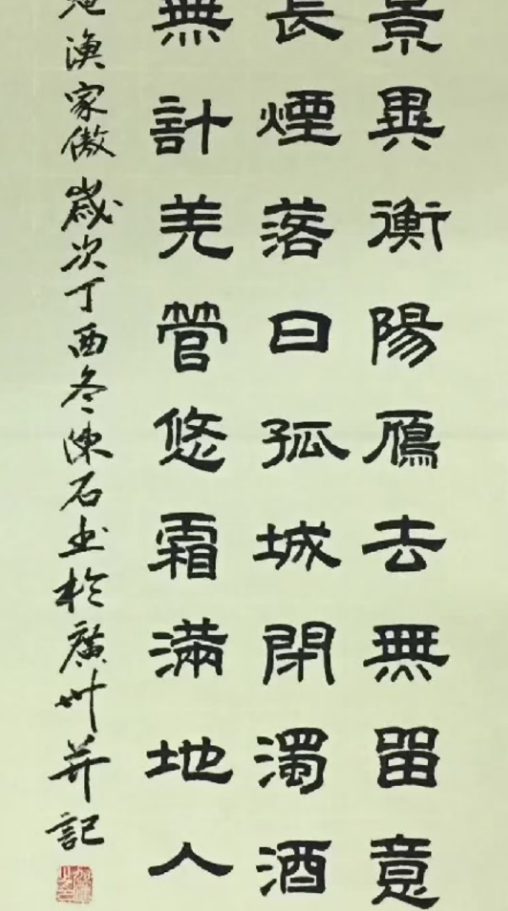 景異衡陽鴈去無留意
長煙落日孤城閉濁酒
無計羌管悠霜滿地人
漁家傲歲次丁酉冬陳石书於廣州并記